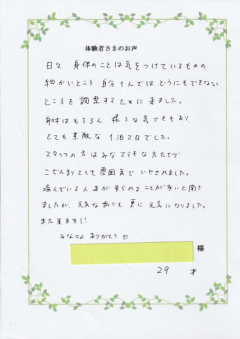 体験者さまのお声
日々 身体のことは気をつけているものの
細かいところ 自分1人ではどうにもできない
ところを調整するために来ました。
身体はもちろん 様々な気づきもあり
とても素敵な1泊2日でした。
スタッフの方はみなステキな方たちで
こぢんまりとしても雰囲気でいやされました。
悩んでいる人が来られることが多いと聞き
ましたが、元気な私でも更に元気になりました。
また来ます!!
みなさん ありがとう
様
29 才